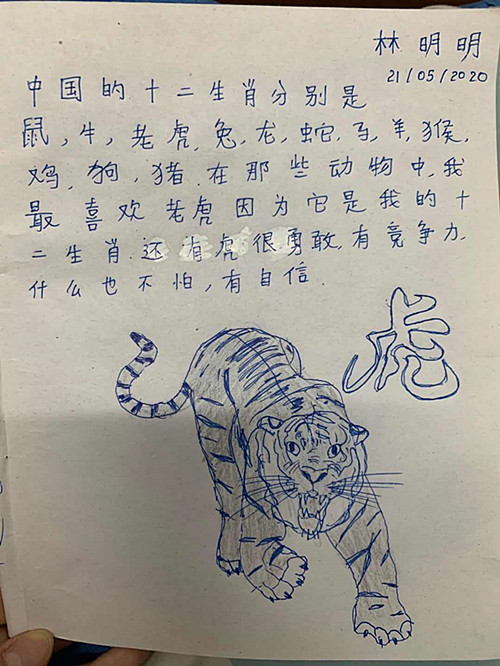 林明明
21/05/2020
中国的十二生肖分别是
鼠,牛,老虎,兔,龙,蛇,马,羊,猴,
鸡,狗,猪.在那些动物中,我
最喜欢老虎因为它是我的十
二生肖.还有虎很勇敢,有竞争力,
什么也不怕,有自信.
虎